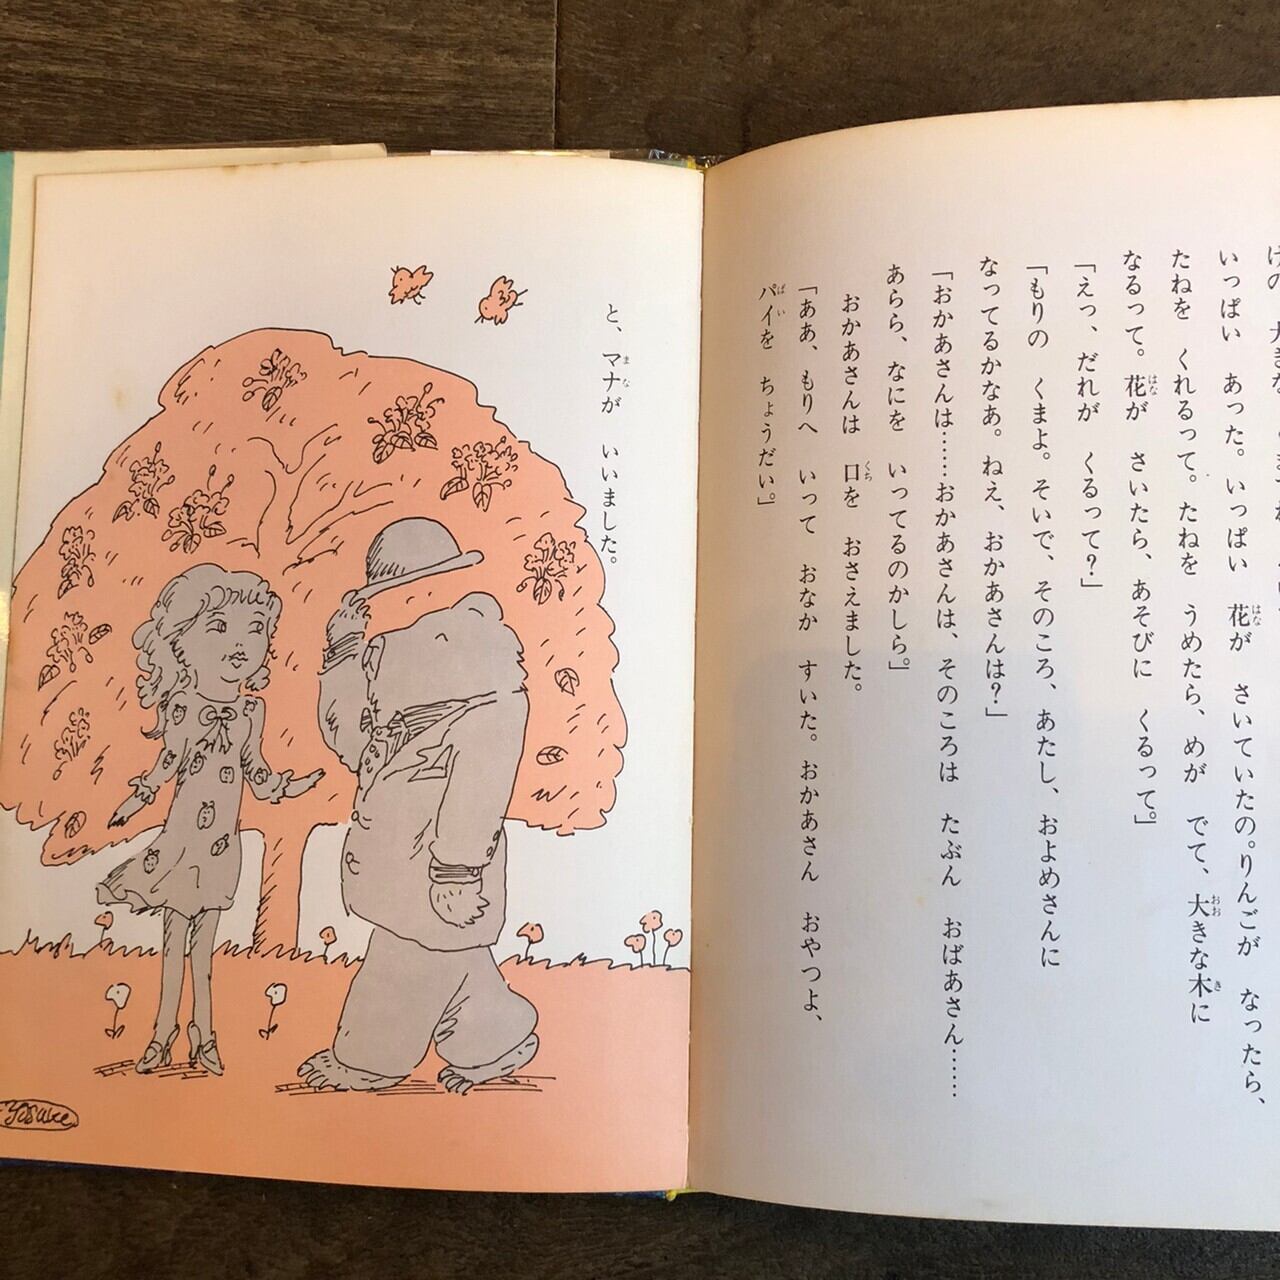 けの
いっぱい あった。いっぱい 花が さいていたの。りんごが なったら、
たねを くれるって。たねを うめたら、めが でて、大きな木に
なるって。花が さいたら、あそびに くるって。」
「えっ、だれが くるって?」
「もりの くまよ。そいで、そのころ、あたし、およめさんに
なってるかなあ。ねえ、おかあさんは?」
「おかあさんは……おかあさんは、そのころは たぶん おばあさん……
あらら、なにを いってるのかしら。」
おかあさんは 口を おさえました。
「ああ、もりへ いって おなか すいた。おかあさん おやつよ、
パイを ちょうだい。」
と、マナが いいました。
Yosuke